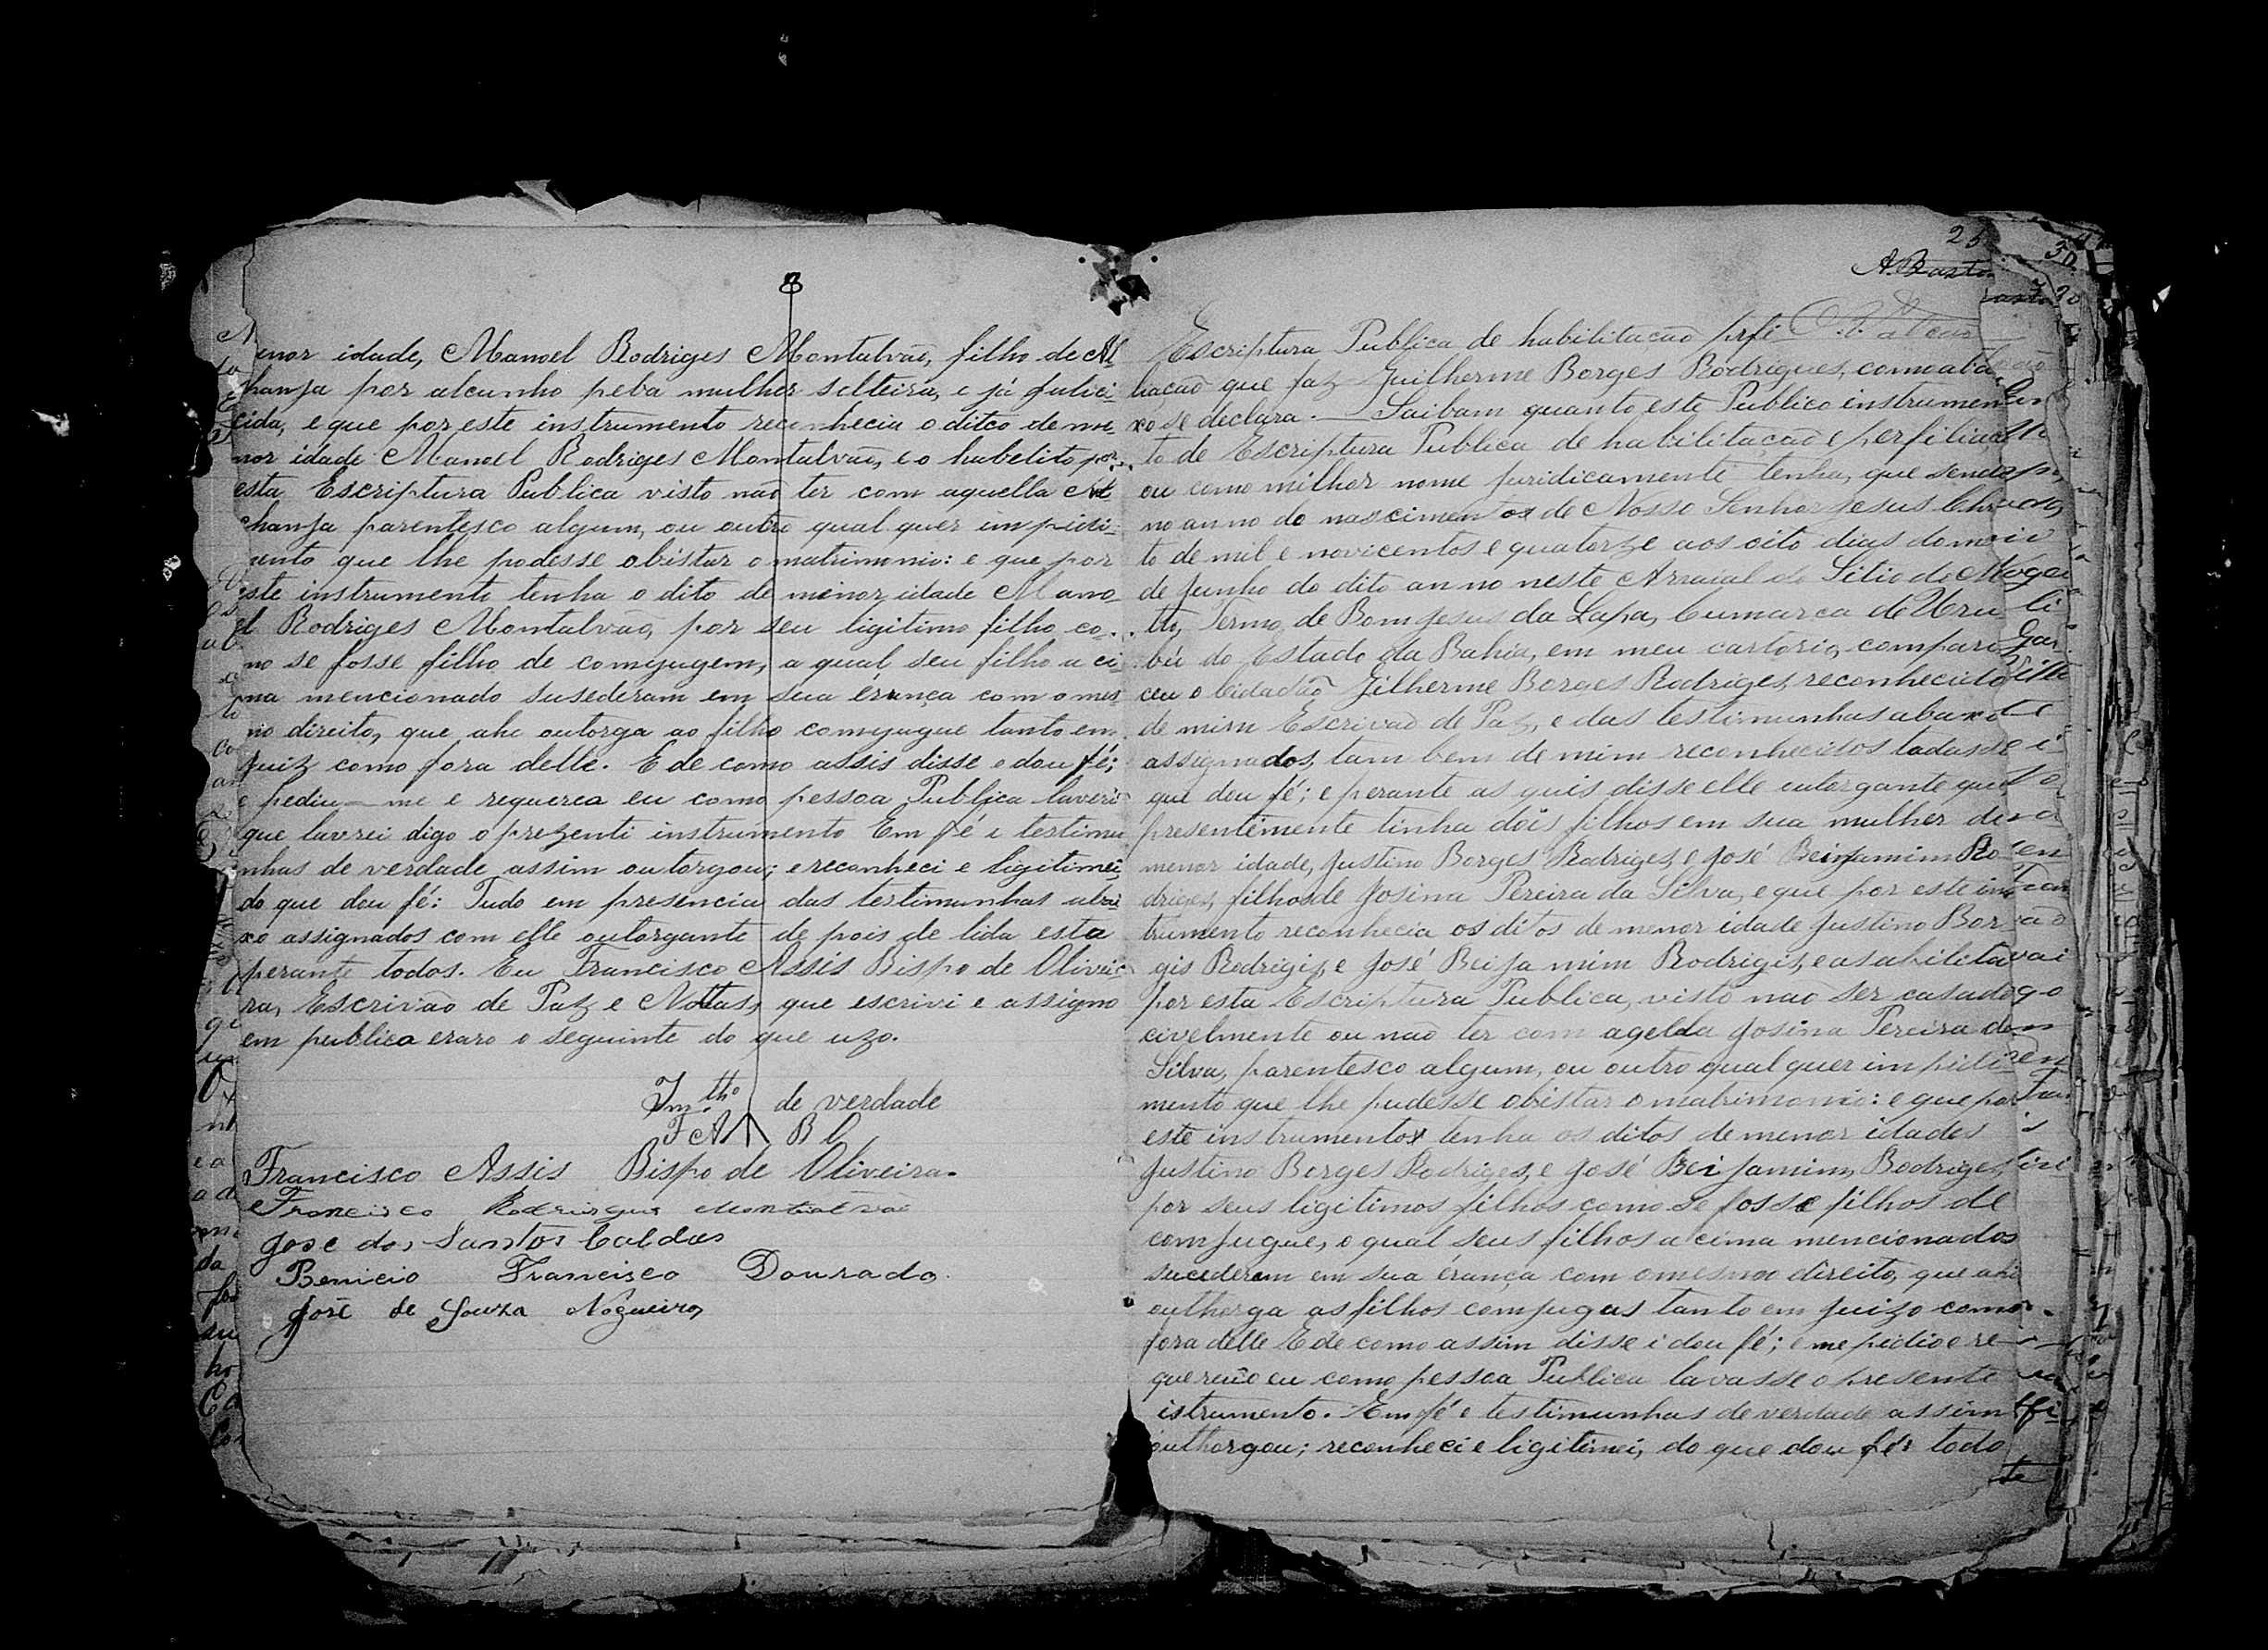 enor idade, Manoel Rodriges Montalvão, filho de Al
chanja por alcunho peba mulher sólteira, e já falici-
cida, e que por este instrumento reconhecia o ditco de me-
nor idade Manoel Rodriges Montalvão, e o habelito por
esta Escriptura Publica visto não ter com aquella Al
chanja parentesco algum, ou outro qual quer impidi-
mento que lhe podesse obistar o matrimonio: e que por
este instrumento tenha o dito de minor idade Mano-
el Rodriges Montalvão, por seu ligitimo filho co-
mo se fosse filho de comjugem, a qual seu filho a ci
ma mencionado susederam em sua érança com o mes
mo direito, que ahe outorga ao filho comjugue tanto em
juiz como fora delle. E de como assis disse e dou fé;
e pediu-me e requerea eu como pessoa Publica laveri
que lavrei digo o prezenti instrumento Em fé e testimu
nhas de verdade assim outorgou; e reconheci e ligitimei
do que dou fé: Tudo em presencia das testimunhas abai
xo assignados com elle outorgante de pois de lida esta
perante todos. Eu Francisco Assis Bispo de Olivei-
ra, Escrivão de Paz e Nottas, que escrivi e assigno
em publica eraro o seguinte do que uzo.
de verdade
F A B O
Francisco Assis Bispo de Oliveira.
Francisco Rodrigues Montalvão
José dos Santos Caldas
Benicio Francisco Dourado.
José de Souza Nogueira
25
A. Bastos
Escriptura Publica de habilitação prfi
liação que faz Guilherme Borges Rodrigues, como aba
xo se declara. — Saibam quanto este Publico instrumen
to de Escriptura Publica de habilitação e perfiliação
ou como milhor nome juridicamente tenha, que sendo
no anno do nascimento de Nosso Senhor Jesus Chris
to de mil e novicentos e quatorze aos oito dias do mes
de Junho do dito anno neste Arraial do Sitio do Matto
Termo de Bom Jesus da Lapa, Cumarca de Uru
bú do Estado da Bahia, em meu cartorio, compare
ceu o Cidadão Gilherme Borges Rodriges, reconhecido
de mim Escrivão de Paz, e das testimunhas abaxo
assignados, tam bem de mim reconhecidos todas de
que dou fé; e perante as quis disse elle outorgante que
presentemente tinha dois filhos em sua mulher de
menor idade, Justino Borges Rodriges, e José Beijamim Ro
driges, filhos de Josina Pereira da Silva, e que por este ins
trumento reconhecia os ditos de menor idade Justino Bor
gis Rodrigis, e José Beija mim Rodrigis, e as abilita
por esta Escriptura Publica, visto não ser casado
civelmente ou não ter com agella Josina Pereira da
Silva, parentesco algum, ou outro qual quer impidi
mento que lhe pudesse obistar o matrimonio: e que por
este instrumento tenha os ditos de menor idades
Justino Borges Rodriges, e José Beijamim, Rodriges
por seus ligitimos filhos como se fosse filhos de
comjugue, o qual seus filhos a cima mencionados
sucederam em sua érança com o mesmo direito, que ahi
outhorga as filhos comjugas tanto em juizo como
fora delle E de como assim disse i dou fé; e me pidio e re
quereu eu como pessoa Publica lavasse o presente
istrumento. Em fé e testimunhas de verdade assim
outhorgou; reconheci e ligitimei, do que dou fé: todo